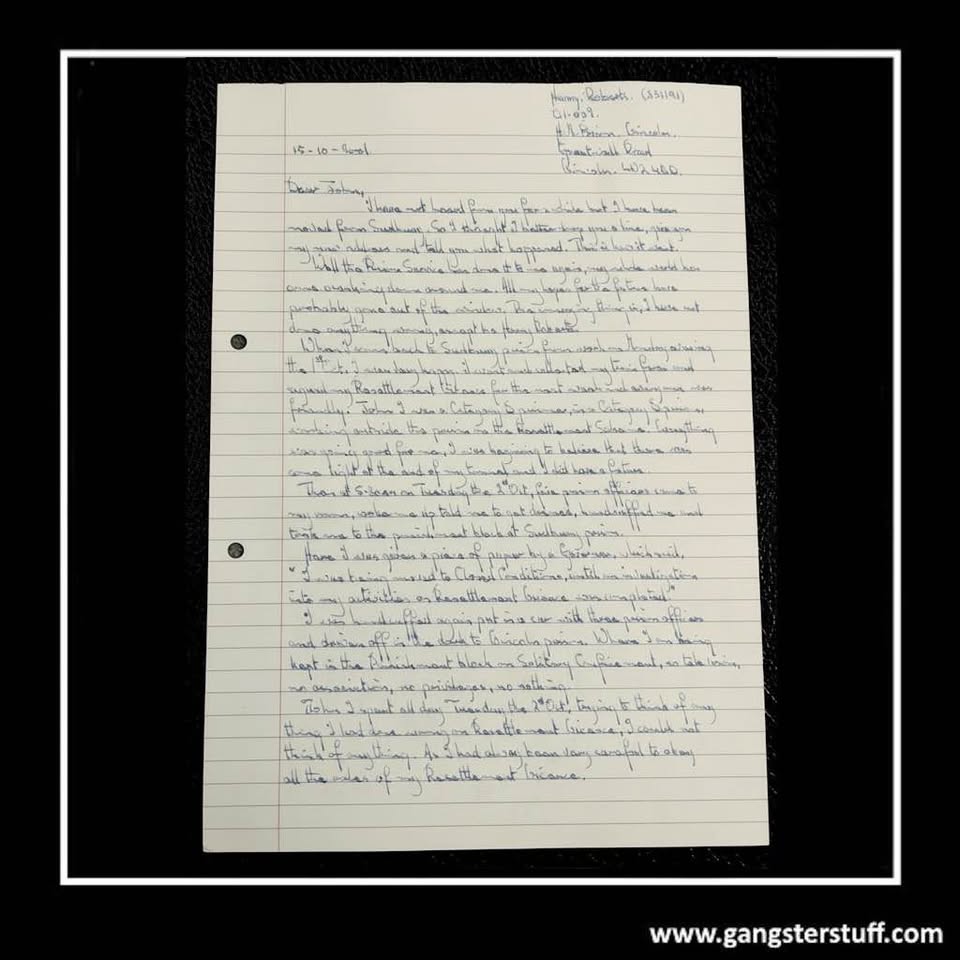 Harry Roberts. (231191)
G1-009.
H.M. Prison Lincoln.
Greetwell Road
Lincoln. LN2 4BD.
15-10-2001
Dear John,
I have not heard from you for a while but I have been
moved from Sudbury, So I thought I better drop you a line, give you
my new address and tell you what happened. This is how it went.
Well the Prison Service has done it to me again, my whole world has
come crashing down around me. All my hopes for the future have
probably gone out of the window. The thing is, I have not
done anything wrong, except be Harry Roberts.
When I came back to Sudbury prison from work on Monday evening
the 1st Oct, I was very happy. I went and collected my form and
signed my Resettlement Licence for the next week and everyone was
friendly. John I was a Category D prisoner, in a Category D prison,
working outside the prison on the Resettlement Scheme. Everything
was going good for me, I was beginning to believe that there was
some light at the end of my tunnel and I did have a future.
Then at on Tuesday the 2nd Oct, prison officers came to
my room, woke me up told me to get dressed, handcuffed me and
took me to the punishment block at Sudbury prison.
Here I was given a piece of paper by a Governor, which said,
"I was being moved to Closed Conditions, until an investigation
into my activities on Resettlement Licence was completed."
I was handcuffed again put in a car with three prison officers
and driven off in the dark to Lincoln prison. Where I am being
kept in the Punishment block on Solitary Confinement,
no association, no privileges, no nothing.
John I spent all day Tuesday the 2nd Oct, trying to think of any
thing I had done wrong on Resettlement Licence, I could not
think of anything. As I had always been very careful to obey
all the rules of my Resettlement Licence.
www.gangsterstuff.com